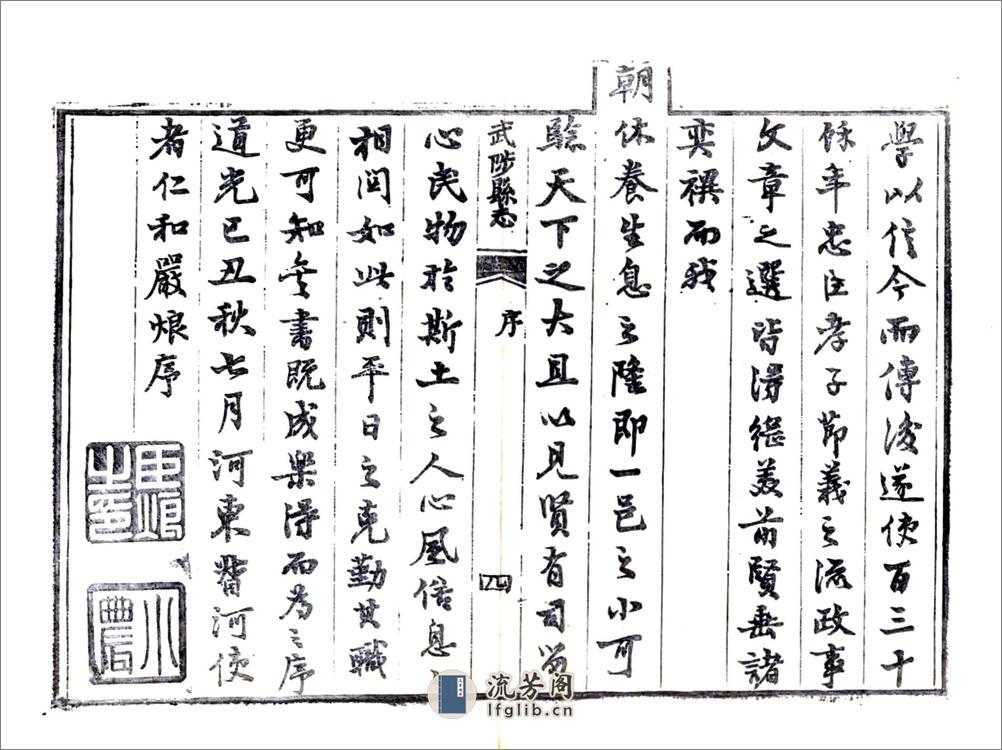 學以信今而傳後遂使百三十
餘年忠臣孝子節義之流政事
文章之選皆得繼美前賢垂諸
奕禩而我
朝休養生息之隆即一邑之小可
驗天下之大且以見賢有司留
武陟縣志
序
四
心民物於斯土之人心風俗息息
相関如此則平日之克勤其職
更可知矣書既成樂得而為之序
道光己丑秋七月河東督河使
者仁和嚴烺序
流芳阁
lfglib.cn